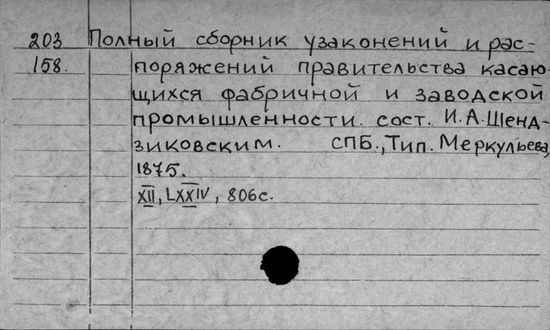 203 Полный сборник узаконений и рас-
158. поряжений правительства касаю-
щихся фабричной и заводской
промышленности. сост. И.А.Шенд-
зиковским. СПБ., Тип. Меркульева,
1875.
XII, LXXIV, 806с.